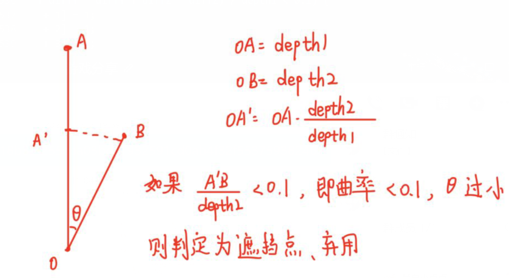 A
OA = depth1
OB = depth2
A'
B
OA' = OA · depth2 / depth1
θ
如果 A'B / depth2 < 0.1, 即曲率 < 0.1, θ 过小
O
则判定为遮挡点、弃用